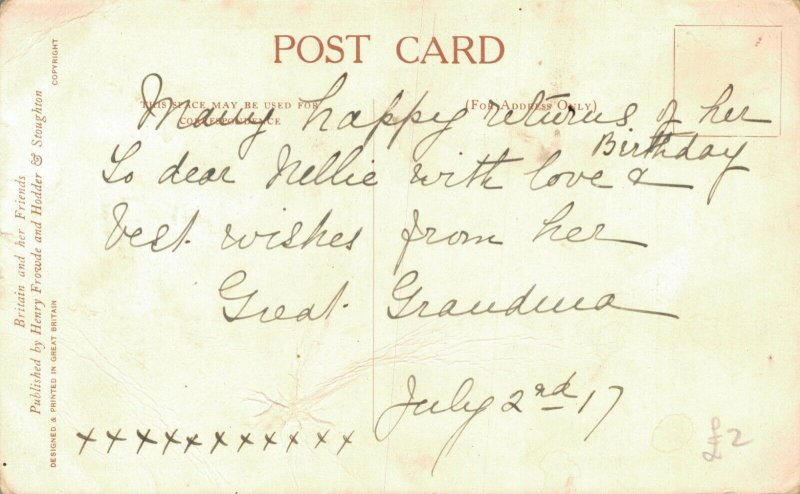 POST CARD
THIS SPACE MAY BE USED FOR
CORRESPONDENCE
(FOR ADDRESS ONLY)
Many happy returns of her
Birthday
To dear Nellie with love &
best wishes from her
Great Grandma
July 2nd 17
x x x x x x x x x x x
Britain and her Friends
Published by Henry Frowde and Hodder & Stoughton
DESIGNED & PRINTED IN GREAT BRITAIN
COPYRIGHT
2